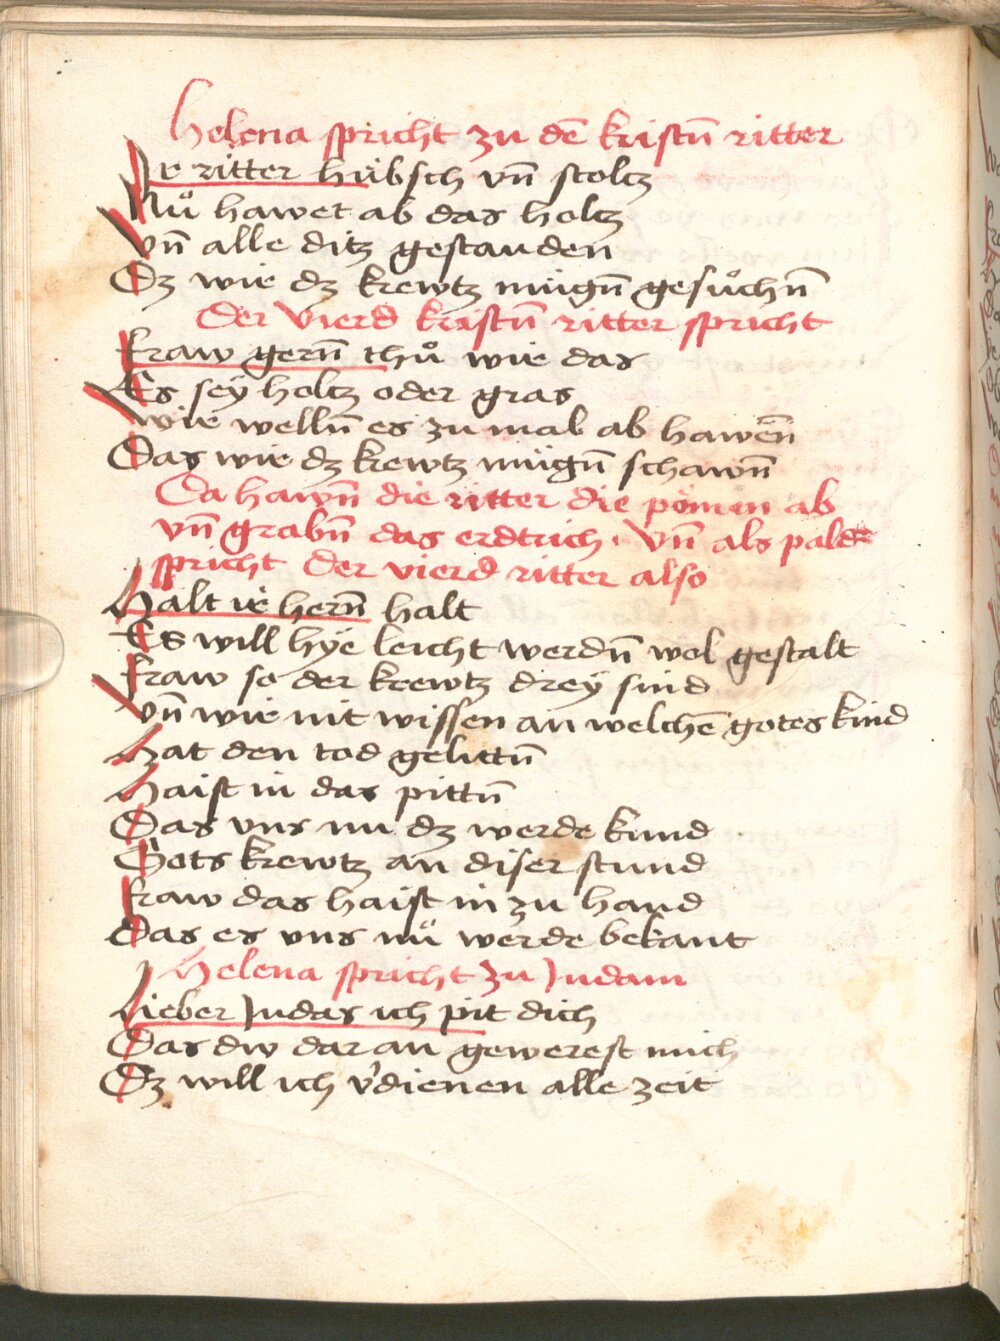 Helena spricht zu dē kristn̄ ritter
Ir ritter hübsch vn̄ stoltz
Nů hawet ab das holtz
Vn̄ alle ditz gestanden
Dz wir dz krewtz mügn̄ gesůchn̄
Der vierd kristn̄ ritter spricht
Fraw gern̄ thů wir das
Es seÿ holtz oder gras
Wir welln̄ es zu mal ab hawēn
Das wir dz krewtz mügn̄ schawn̄
Da hawn̄ die ritter die pömin ab
vn̄ grabn̄ das erdtrich · Vn̄ als palde
spricht der vierd ritter also
Halt ir hern̄ halt
Es will hÿe leicht werdn̄ wol gestalt
Fraw se der krewtz dreÿ sind
Vn̄ wir nit wissen an welchē gotes kind
Hat den tod gelittn̄
Haist in das pittn̄
Das vns nu dz werde kund
Gots krewtz an diser stund
Fraw das haist in zu hand
Das es vns nů werde bekant
Helena spricht zu Judam
Lieber Judas ich pit dich
Das dw dar an gewerest mich
Dz will ich v'dienen alle zeit